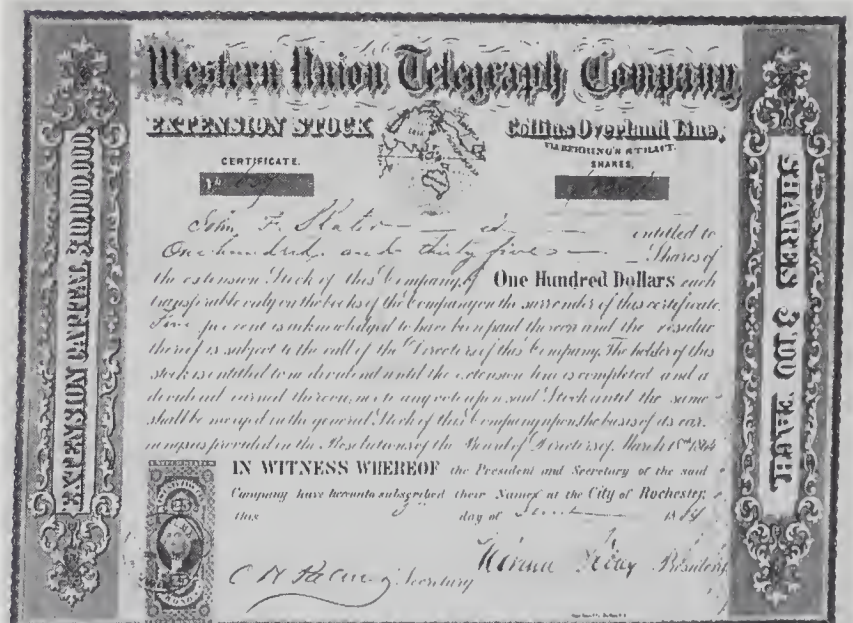 Western Union Telegraph Company
EXTENSION STOCK
Collins Overland Line,
VIA BEHRING'S STRAIT.
CERTIFICATE.
SHARES,
EXTENSION CAPITAL $10,000,000.
SHARES $100 EACH.
John F. Slater is entitled to
One hundred and thirty five Shares of
the extension Stock of this Company, of One Hundred Dollars each
transferable only on the books of the Company on the surrender of this certificate.
Five per cent is acknowledged to have been paid thereon and the residue
thereof is subject to the call of the Directors of this Company. The holder of this
stock is entitled to no dividend until the extension line is completed and a
dividend earned thereon, nor to any vote upon said Stock until the same
shall be merged in the general Stock of this Company upon the basis of its ear-
nings as provided in the Resolutions of the Board of Directors of March 18th 1864
IN WITNESS WHEREOF the President and Secretary of the said
Company have hereunto subscribed their Names at the City of Rochester,
this day of 1864
Secretary
Hiram Sibley President